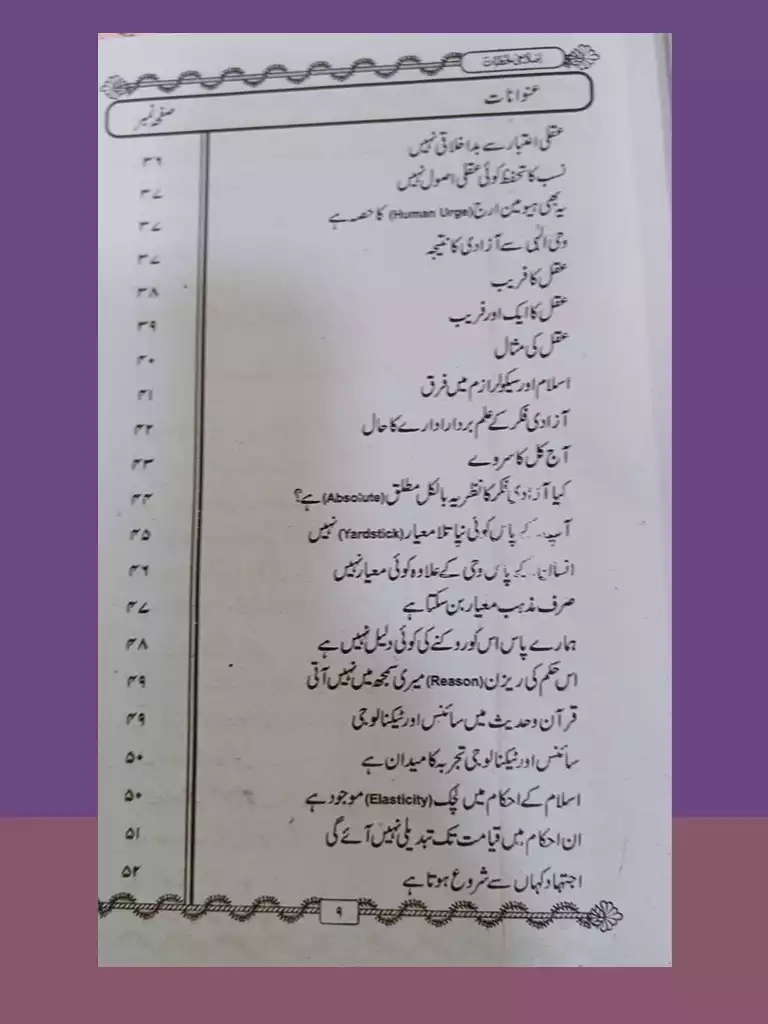 اصلاحی خطبات
عنوانات صفحہ نمبر
عقلی اعتبار سے بداخلاقی نہیں ۳۶
نسب کا تحفظ کوئی عقلی اصول نہیں ۳۷
یہ بھی ہیومین ارج (Human Urge) کا حصہ ہے ۳۷
وحی الٰہی سے آزادی کا نتیجہ ۳۷
عقل کا فریب ۳۸
عقل کا ایک اور فریب ۳۹
عقل کی مثال ۴۰
اسلام اور سیکولرازم میں فرق ۴۱
آزادی فکر کے علم بردار ادارے کا حال ۴۲
آج کل کا سروے ۴۳
کیا آزادی فکر کا نظریہ بالکل مطلق (Absolute) ہے؟ ۴۴
آپ کے پاس کوئی نپا تلا معیار (Yardstick) نہیں ۴۵
انسان کے پاس وحی کے علاوہ کوئی معیار نہیں ۴۶
صرف مذہب معیار بن سکتا ہے ۴۷
ہمارے پاس اس کو روکنے کی کوئی دلیل نہیں ہے ۴۸
اس حکم کی ریزن (Reason) میری سمجھ میں نہیں آتی ۴۹
قرآن و حدیث میں سائنس اور ٹیکنالوجی ۴۹
سائنس اور ٹیکنالوجی تجربہ کا میدان ہے ۵۰
اسلام کے احکام میں لچک (Elasticity) موجود ہے ۵۰
ان احکام میں قیامت تک تبدیلی نہیں آئے گی ۵۱
اجتہاد کہاں سے شروع ہوتا ہے ۵۲
۹